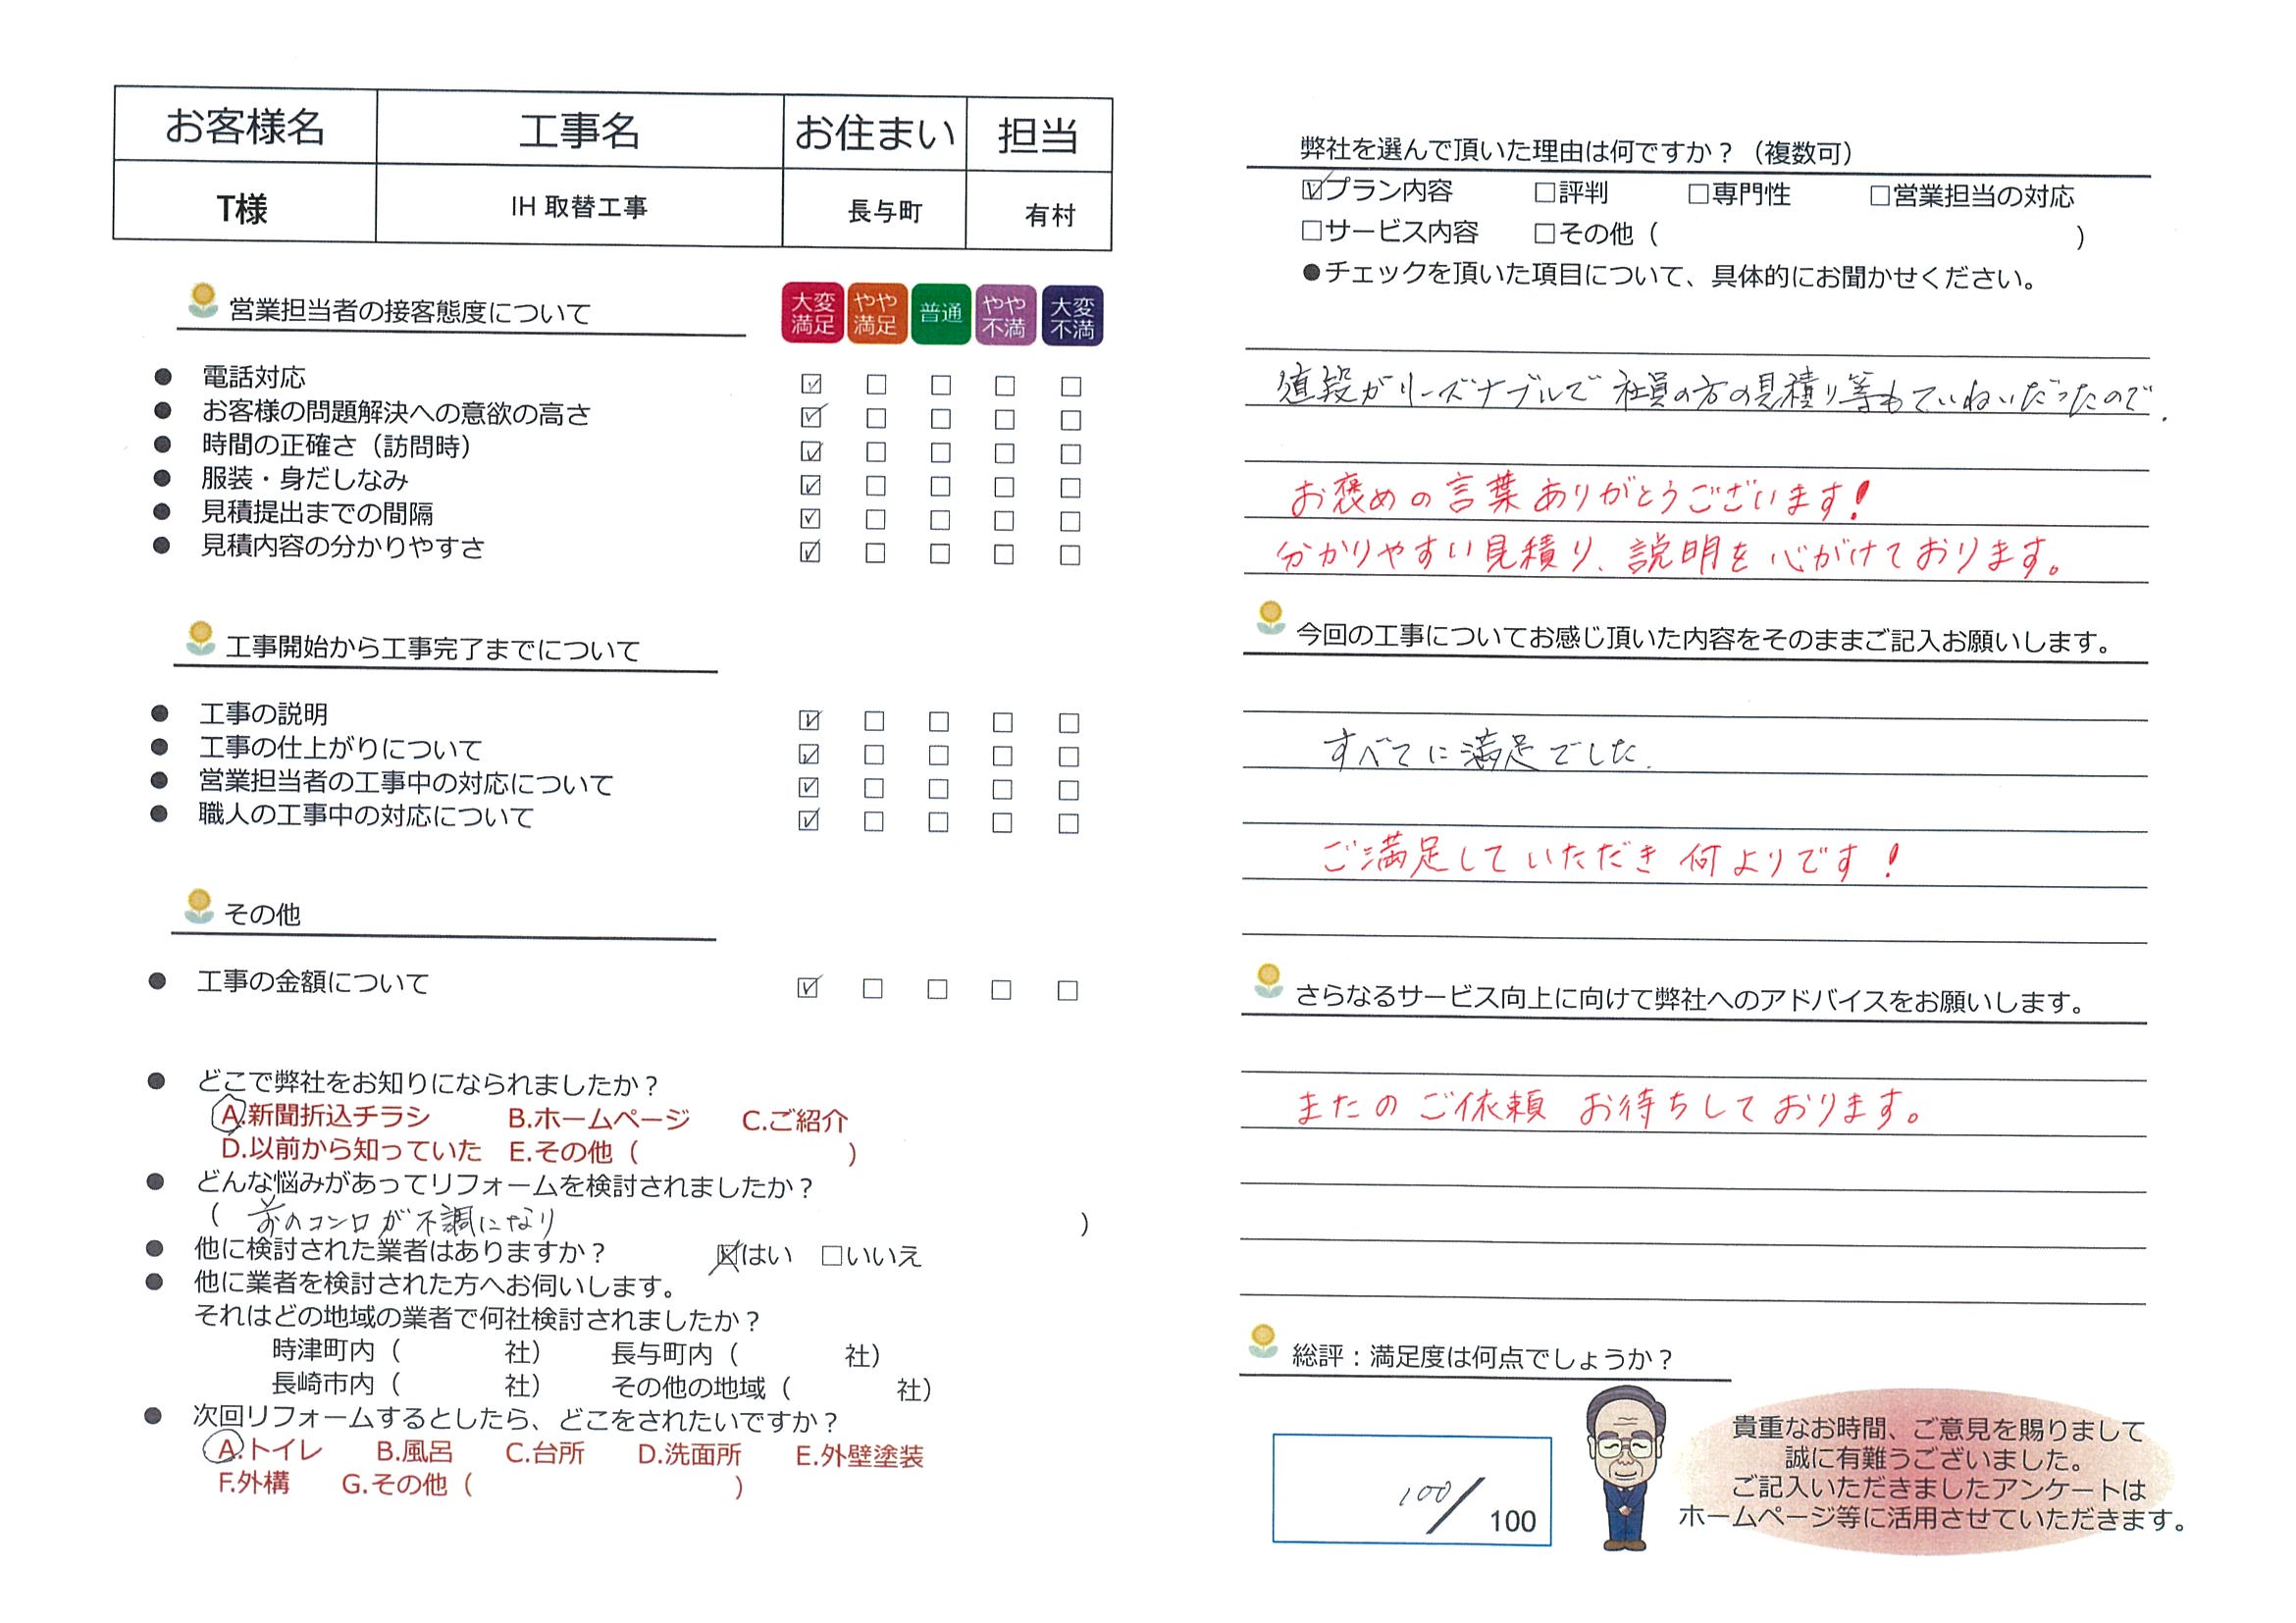 お客様名 工事名 お住まい 担当
T様 IH 取替工事 長与町 有村
営業担当者の接客態度について 大変満足 やや満足 普通 やや不満 大変不満
● 電話対応 ☑ □ □ □ □
● お客様の問題解決への意欲の高さ ☑ □ □ □ □
● 時間の正確さ（訪問時） ☑ □ □ □ □
● 服装・身だしなみ ☑ □ □ □ □
● 見積提出までの間隔 ☑ □ □ □ □
● 見積内容の分かりやすさ ☑ □ □ □ □
工事開始から工事完了までについて
● 工事の説明 ☑ □ □ □ □
● 工事の仕上がりについて ☑ □ □ □ □
● 営業担当者の工事中の対応について ☑ □ □ □ □
● 職人の工事中の対応について ☑ □ □ □ □
その他
● 工事の金額について ☑ □ □ □ □
● どこで弊社をお知りになられましたか？
A.新聞折込チラシ B.ホームページ C.ご紹介
D.以前から知っていた E.その他（ ）
● どんな悩みがあってリフォームを検討されましたか？
（ 前のコンロが不調になり ）
● 他に検討された業者はありますか？ ☑はい □いいえ
● 他に業者を検討された方へお伺いします。
それはどの地域の業者で何社検討されましたか？
時津町内（ 社） 長与町内（ 社）
長崎市内（ 社） その他の地域（ 社）
● 次回リフォームするとしたら、どこをされたいですか？
A.トイレ B.風呂 C.台所 D.洗面所 E.外壁塗装
F.外構 G.その他（ ）
弊社を選んで頂いた理由は何ですか？（複数可）
☑プラン内容 □評判 □専門性 □営業担当の対応
□サービス内容 □その他（ ）
●チェックを頂いた項目について、具体的にお聞かせください。
値段がリーズナブルで社員の方の見積り等もていねいだったので.
お褒めの言葉ありがとうございます！
分かりやすい見積り、説明を心がけております。
今回の工事についてお感じ頂いた内容をそのままご記入お願いします。
すべてに満足でした.
ご満足していただき何よりです！
さらなるサービス向上に向けて弊社へのアドバイスをお願いします。
またのご依頼 お待ちしております。
総評：満足度は何点でしょうか？
100/100
貴重なお時間、ご意見を賜りまして
誠に有難うございました。
ご記入いただきましたアンケートは
ホームページ等に活用させていただきます。